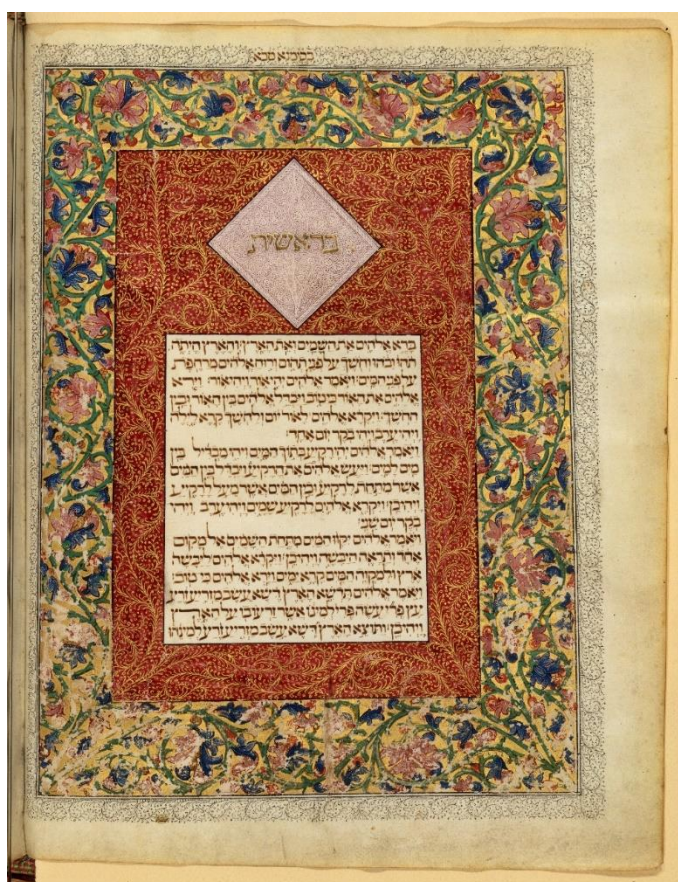 בסימנא טבא
בראשית
ברא אלהים את השמים ואת הארץ׃ והארץ היתה
תהו ובהו וחשך על פני תהום ורוח אלהים מרחפת
על פני המים׃ ויאמר אלהים יהי אור ויהי אור׃ וירא
אלהים את האור כי טוב ויבדל אלהים בין האור ובין
החשך׃ ויקרא אלהים לאור יום ולחשך קרא לילה
ויהי ערב ויהי בקר יום אחד׃
ויאמר אלהים יהי רקיע בתוך המים ויהי מבדיל בין
מים למים׃ ויעש אלהים את הרקיע ויבדל בין המים
אשר מתחת לרקיע ובין המים אשר מעל לרקיע
ויהי כן׃ ויקרא אלהים לרקיע שמים ויהי ערב ויהי
בקר יום שני׃
ויאמר אלהים יקוו המים מתחת השמים אל מקום
אחד ותראה היבשה ויהי כן׃ ויקרא אלהים ליבשה
ארץ ולמקוה המים קרא ימים וירא אלהים כי טוב׃
ויאמר אלהים תדשא הארץ דשא עשב מזריע זרע
עץ פרי עשה פרי למינו אשר זרעו בו על הארץ
ויהי כן׃ ותוצא הארץ דשא עשב מזריע זרע למינהו